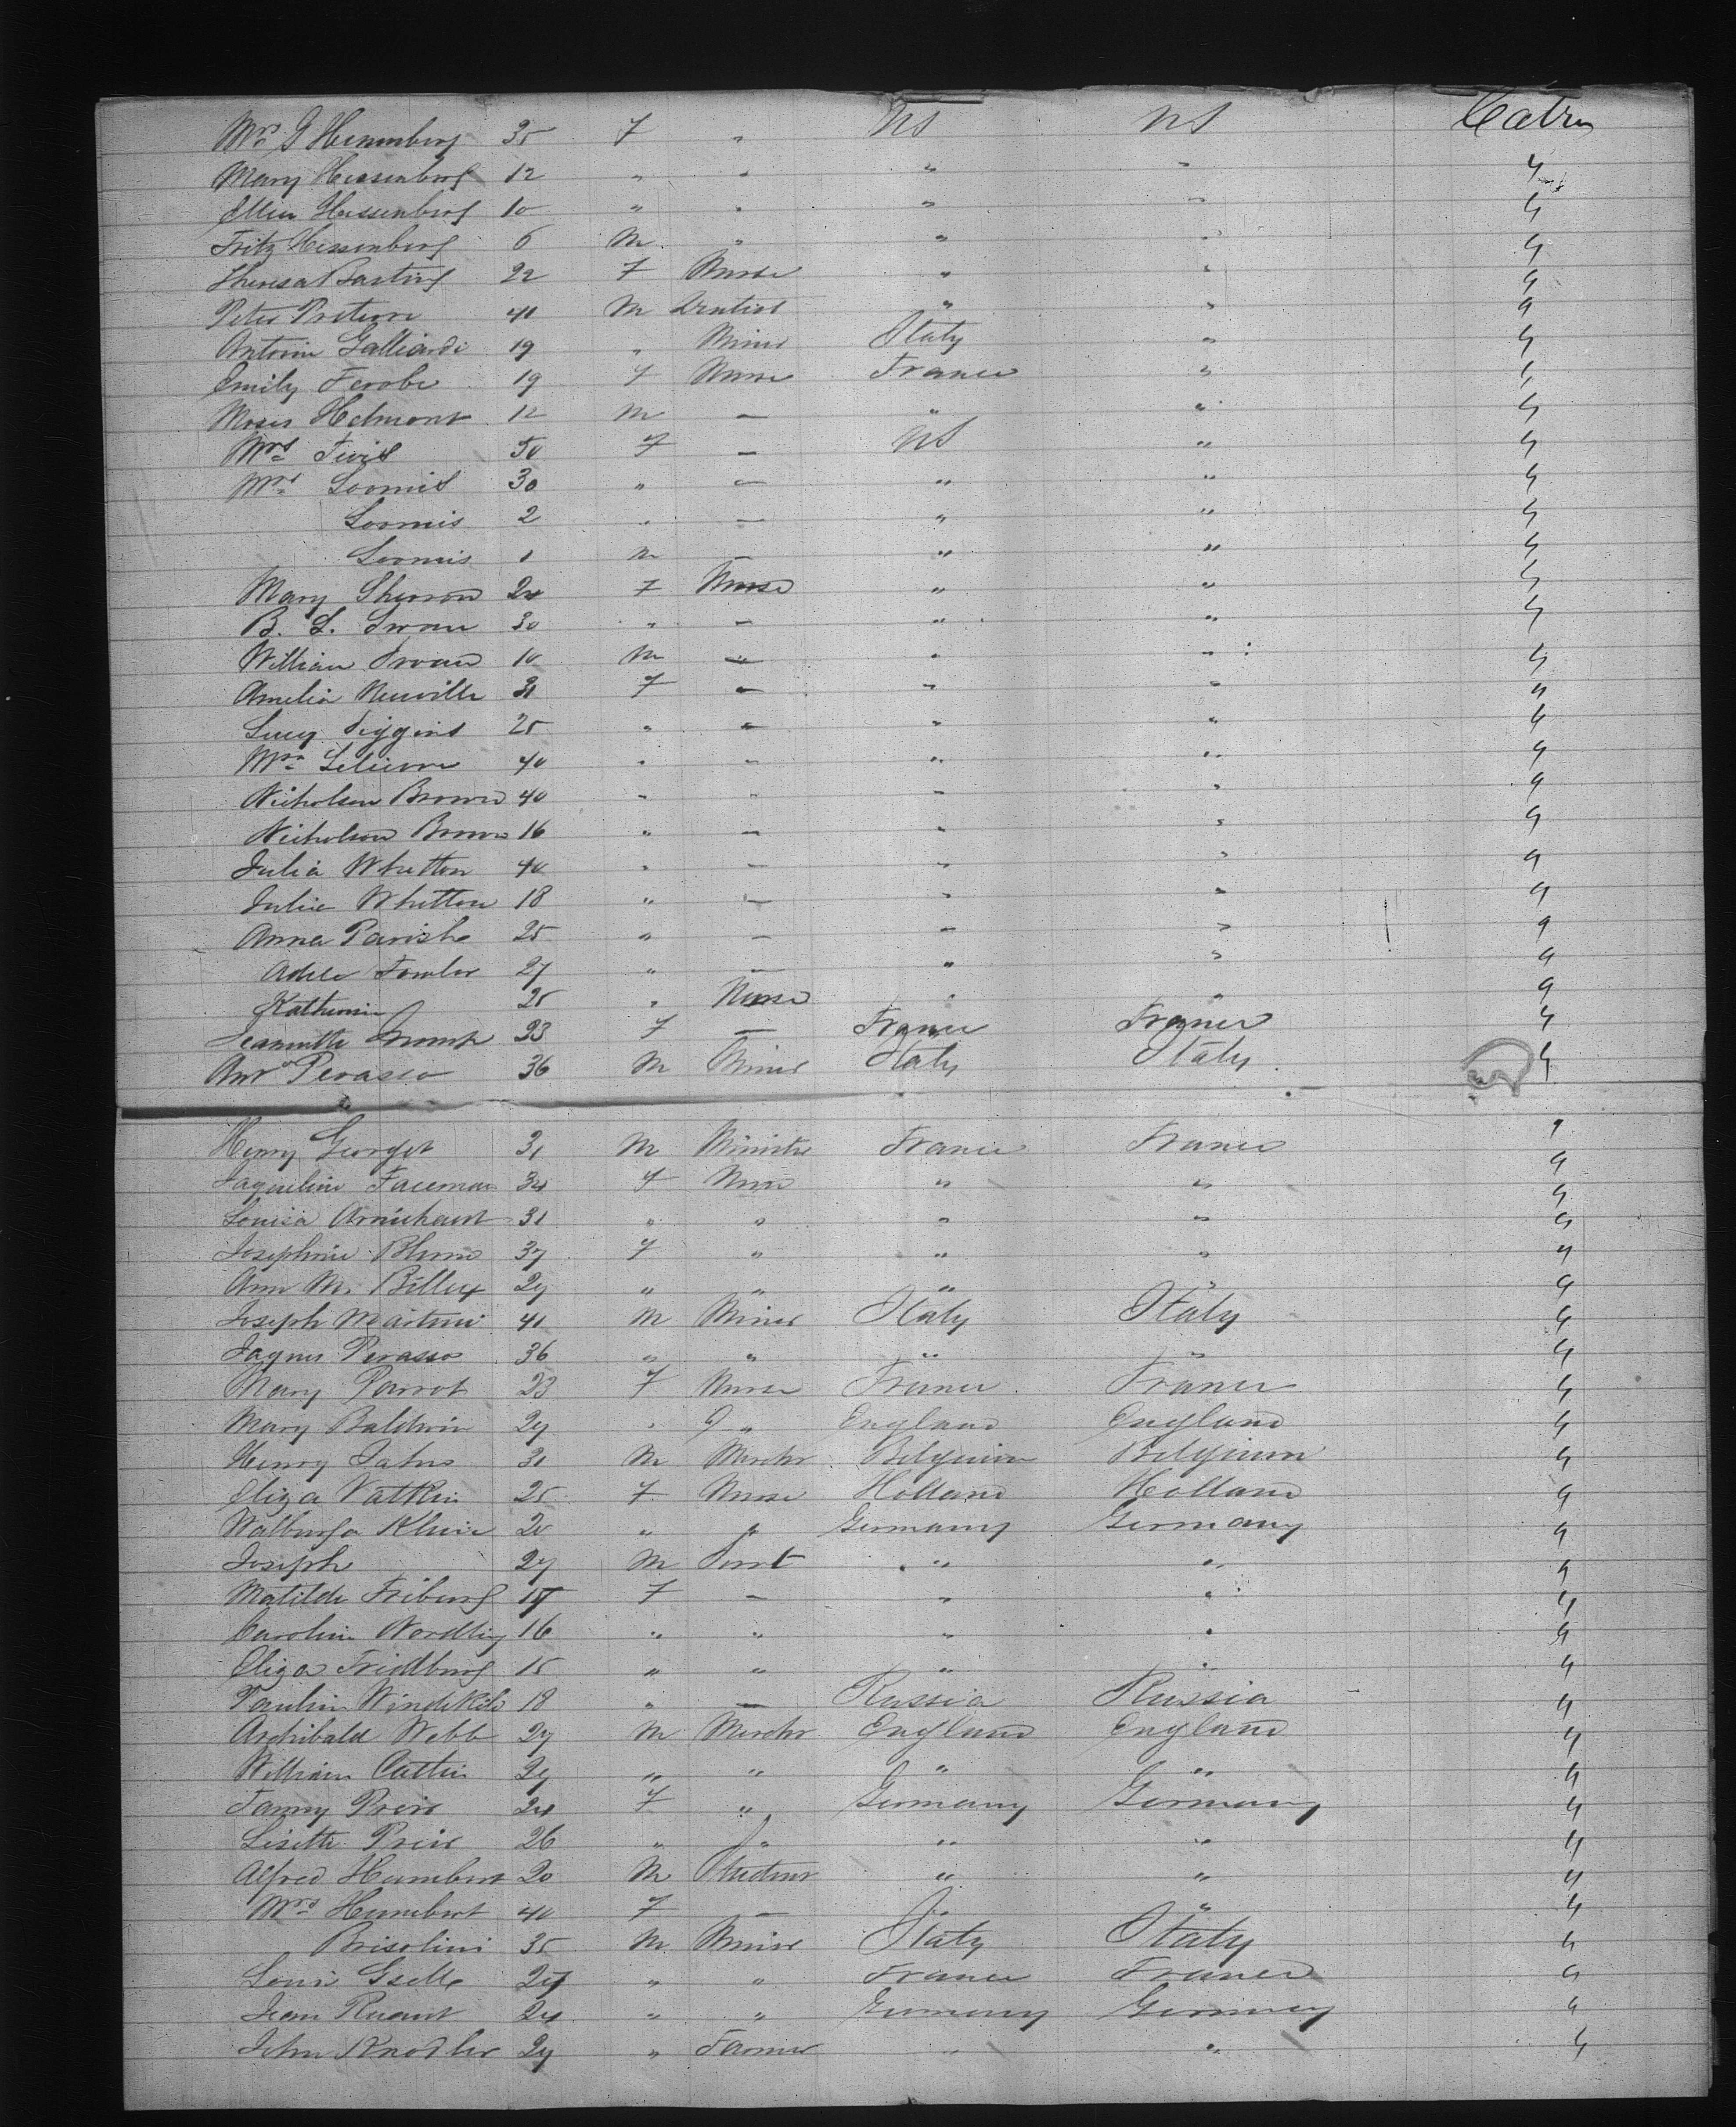 Mrs G Hessenberg 35 F " US US Cabin
Mary Hessenberg 12 " " " " "
Ellen Hessenberg 10 " " " " "
Fritz Hessenberg 6 M " " " "
Theresa Basting 22 F Nurse " " "
Peter 40 M Dentist " " "
Antonin Galliardi 19 " Miner Italy " "
Emily Ferobe 19 F Nurse France " "
Moses Helmont 12 M — " " "
Mrs Tevis 50 F — US " "
Mrs Loomis 30 " — " " "
Loomis 2 " — " " "
Loomis 1 M — " " "
Mary 24 F Nurse " " "
B. L. Swan 30 " — " " "
William Swan 10 M — " " "
Amelia Neuville 31 F — " " "
Lucy Figgins 25 " — " " "
Mrs 40 " " " " "
Nicholson Brown 40 " " " " "
Nicholson Brown 16 " — " " "
Julia Whetton 40 " — " " "
Julia Whetton 18 " — " " "
Anna Parish 25 " — " " "
Adele Fowler 27 " — " " "
Katherine 25 " Nurse " " "
Jeannette 23 F — France France "
Anto Perasso 36 M Miner Italy Italy "
Henry Georget 31 M Ministre France France "
Jaqueline Faceman 34 F Nurse " " "
Louisa 31 " " " " "
Josephine Blum 37 F " " " "
Ann M. Billey 29 " " " " "
Joseph Martini 41 M Miner Italy Italy "
Jaques Perasso 36 " " " " "
Mary Parrot 23 F Nurse France France "
Mary Baldwin 29 " " England England "
Henry Jahns 31 M Mercht Belgium Belgium "
Eliza Vatkin 25 F Nurse Holland Holland "
Walburga Klein 20 " " Germany Germany "
Joseph 29 M Servt " " "
Matilde Friburg 17 F — " " "
Caroline Nordling 16 " " " " "
Eliza Friedburg 15 " " " " "
Paulin 18 " — Russia Russia "
Archibald Webb 27 M Mercht England England "
William Cattin 29 " " " " "
Fanny Preis 24 F " Germany Germany "
Lisette Preis 26 " " " " "
Alfred Humbert 20 M Student " " "
Mrs Humbert 40 F — " " "
Brisolini 35 M Miner Italy Italy "
Louis Gselle 27 " " France France "
Jean Ruant 24 " " Germany Germany "
John Knodler 29 " Farmer " " "